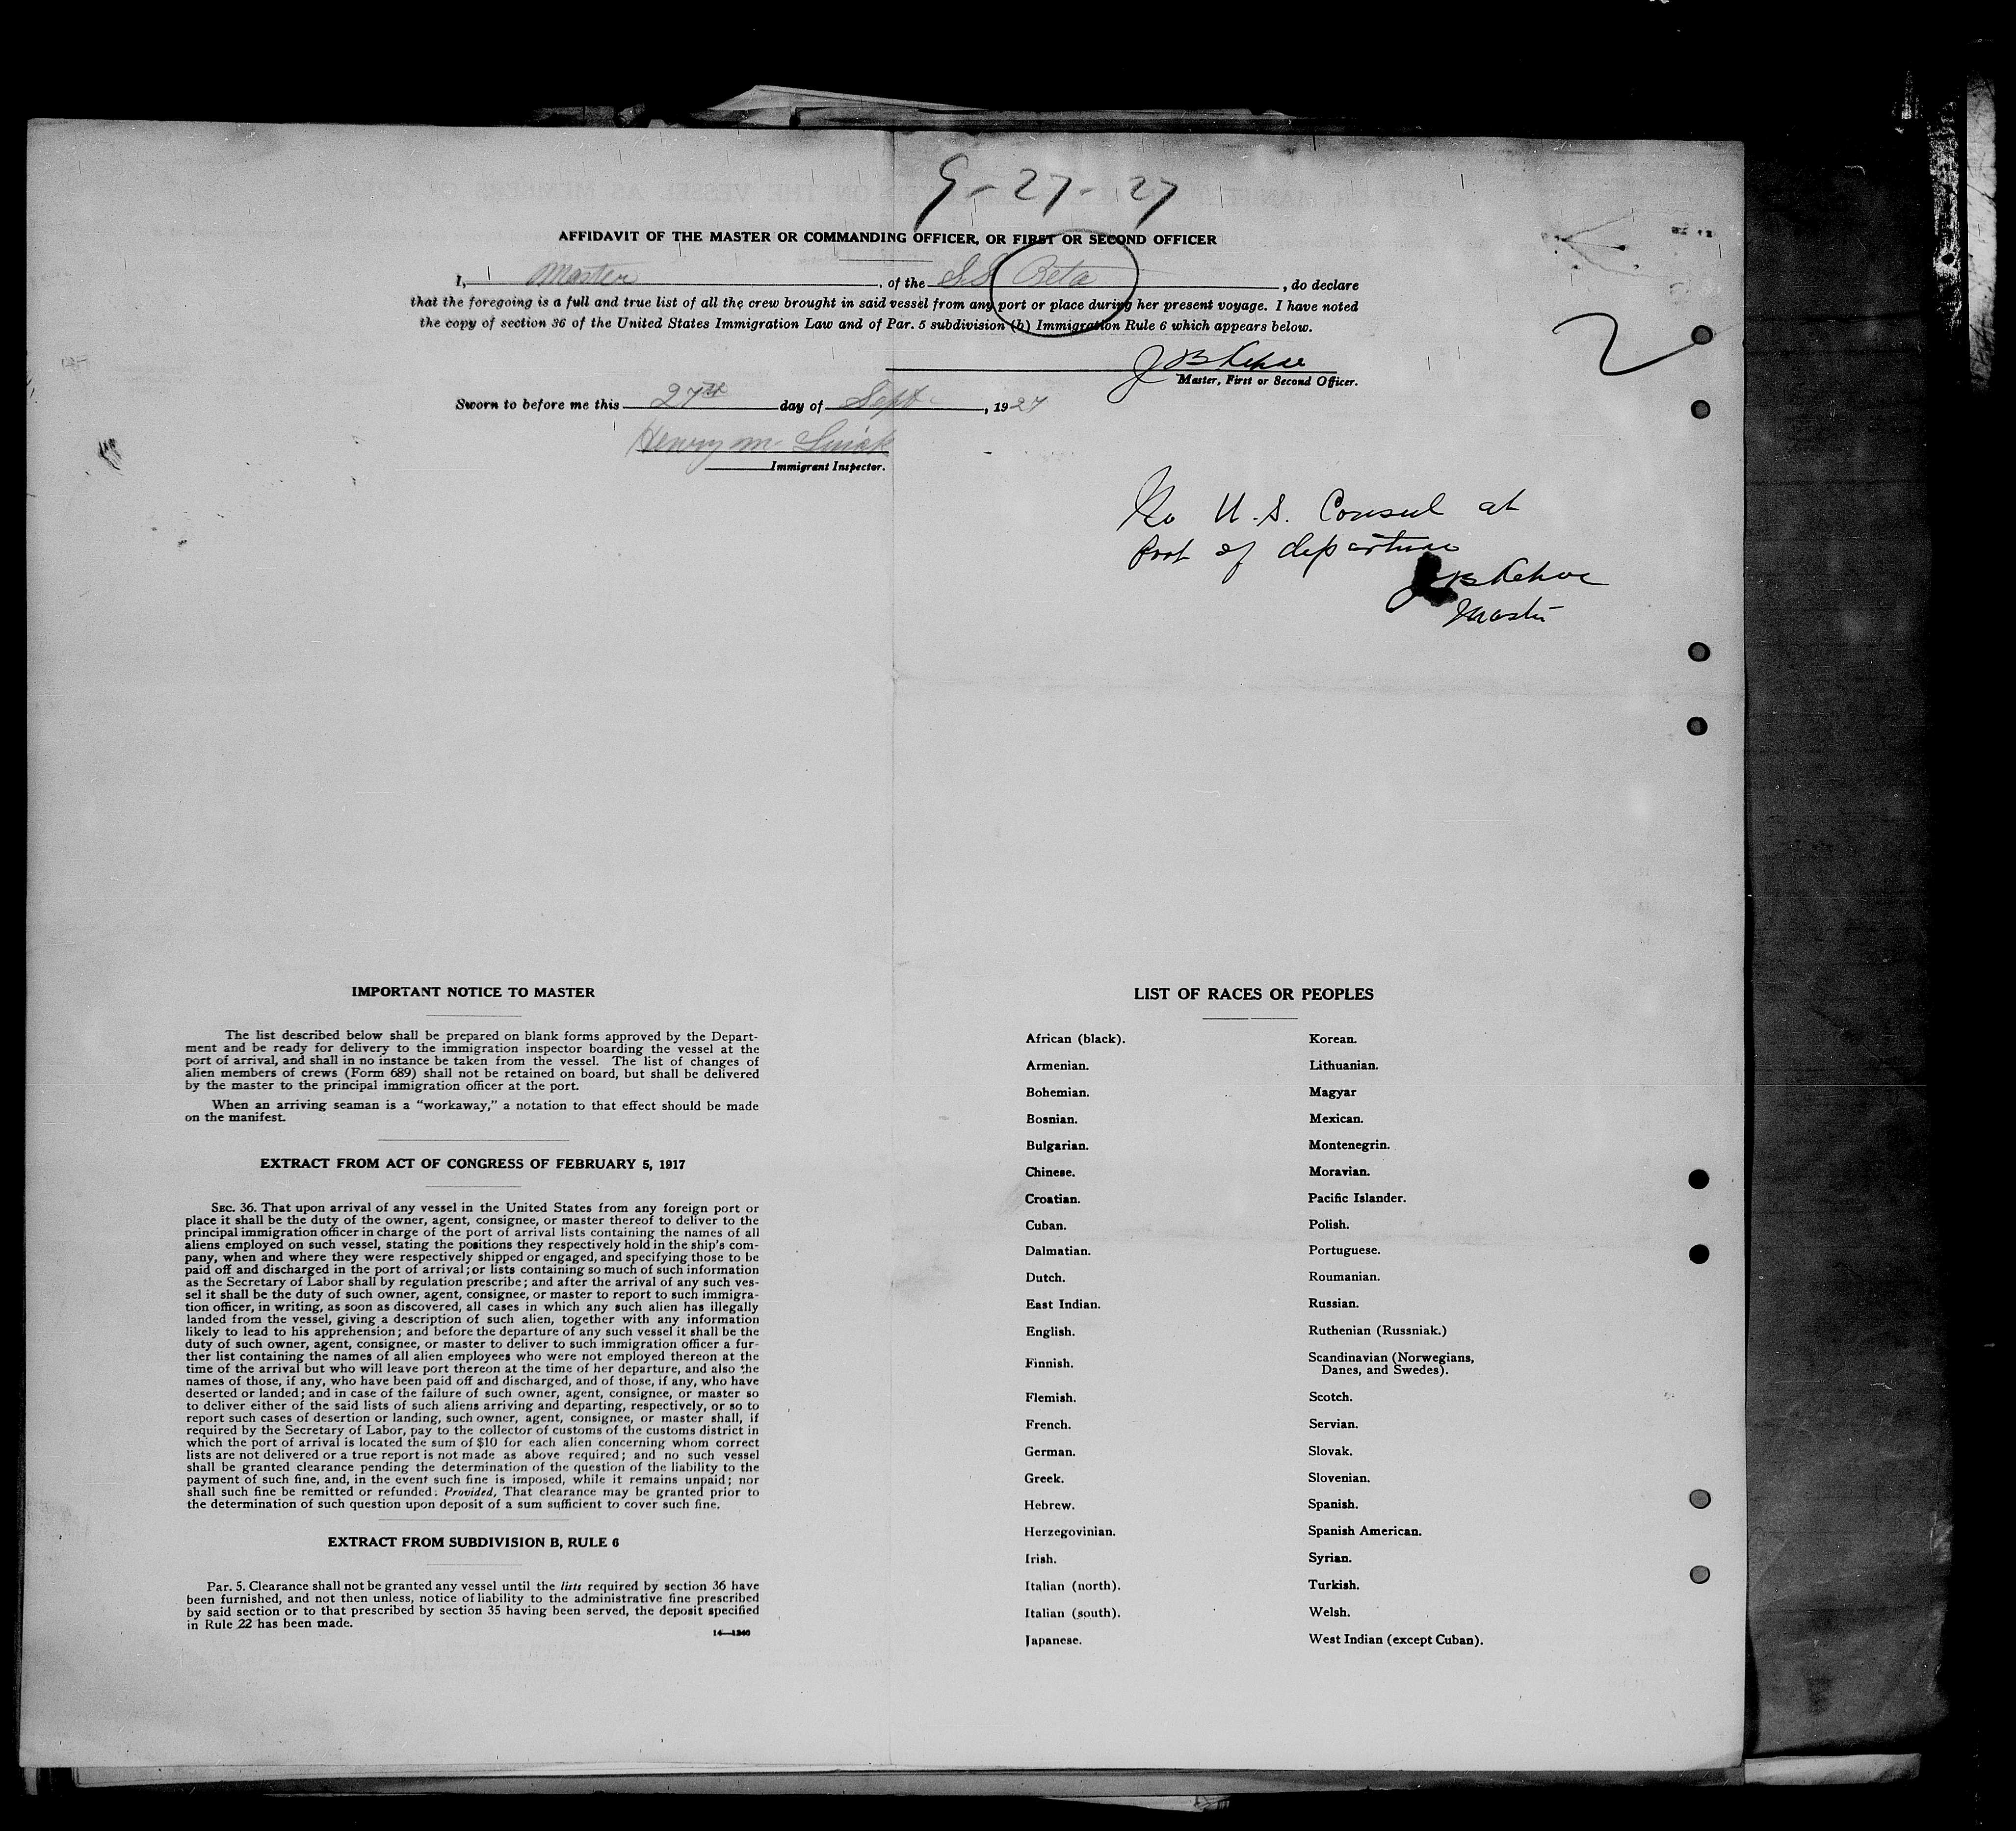 9-27-27
AFFIDAVIT OF THE MASTER OR COMMANDING OFFICER, OR FIRST OR SECOND OFFICER
I, Master, of the SS Beta, do declare
that the foregoing is a full and true list of all the crew brought in said vessel from any port or place during her present voyage. I have noted
the copy of section 36 of the United States Immigration Law and of Par. 5 subdivision (b) Immigration Rule 6 which appears below.
J B Kehoe
Master, First or Second Officer.
Sworn to before me this 27th day of Sept., 1927
Henry M.
Immigrant Inspector.
No U.S. Consul at
Port of departure
J B Kehoe
Master
IMPORTANT NOTICE TO MASTER
The list described below shall be prepared on blank forms approved by the Depart-
ment and be ready for delivery to the immigration inspector boarding the vessel at the
port of arrival, and shall in no instance be taken from the vessel. The list of changes of
alien members of crews (Form 689) shall not be retained on board, but shall be delivered
by the master to the principal immigration officer at the port.
When an arriving seaman is a "workaway," a notation to that effect should be made
on the manifest.
EXTRACT FROM ACT OF CONGRESS OF FEBRUARY 5, 1917
SEC. 36. That upon arrival of any vessel in the United States from any foreign port or
place it shall be the duty of the owner, agent, consignee, or master thereof to deliver to the
principal immigration officer in charge of the port of arrival lists containing the names of all
aliens employed on such vessel, stating the positions they respectively hold in the ship's com-
pany, when and where they were respectively shipped or engaged, and specifying those to be
paid off and discharged in the port of arrival; or lists containing so much of such information
as the Secretary of Labor shall by regulation prescribe; and after the arrival of any such ves-
sel it shall be the duty of such owner, agent, consignee, or master to report to such immigra-
tion officer, in writing, as soon as discovered, all cases in which any such alien has illegally
landed from the vessel, giving a description of such alien, together with any information
likely to lead to his apprehension; and before the departure of any such vessel it shall be the
duty of such owner, agent, consignee, or master to deliver to such immigration officer a fur-
ther list containing the names of all alien employees who were not employed thereon at the
time of the arrival but who will leave port thereon at the time of her departure, and also the
names of those, if any, who have been paid off and discharged, and of those, if any, who have
deserted or landed; and in case of the failure of such owner, agent, consignee, or master so
to deliver either of the said lists of such aliens arriving and departing, respectively, or so to
report such cases of desertion or landing, such owner, agent, consignee, or master shall, if
required by the Secretary of Labor, pay to the collector of customs of the customs district in
which the port of arrival is located the sum of $10 for each alien concerning whom correct
lists are not delivered or a true report is not made as above required; and no such vessel
shall be granted clearance pending the determination of the question of the liability to the
payment of such fine, and, in the event such fine is imposed, while it remains unpaid; nor
shall such fine be remitted or refunded: Provided, That clearance may be granted prior to
the determination of such question upon deposit of a sum sufficient to cover such fine.
EXTRACT FROM SUBDIVISION B, RULE 6
Par. 5. Clearance shall not be granted any vessel until the lists required by section 36 have
been furnished, and not then unless, notice of liability to the administrative fine prescribed
by said section or to that prescribed by section 35 having been served, the deposit specified
in Rule 22 has been made.
14—1240
LIST OF RACES OR PEOPLES
African (black).
Armenian.
Bohemian.
Bosnian.
Bulgarian.
Chinese.
Croatian.
Cuban.
Dalmatian.
Dutch.
East Indian.
English.
Finnish.
Flemish.
French.
German.
Greek.
Hebrew.
Herzegovinian.
Irish.
Italian (north).
Italian (south).
Japanese.
Korean.
Lithuanian.
Magyar
Mexican.
Montenegrin.
Moravian.
Pacific Islander.
Polish.
Portuguese.
Roumanian.
Russian.
Ruthenian (Russniak.)
Scandinavian (Norwegians,
Danes, and Swedes).
Scotch.
Servian.
Slovak.
Slovenian.
Spanish.
Spanish American.
Syrian.
Turkish.
Welsh.
West Indian (except Cuban).